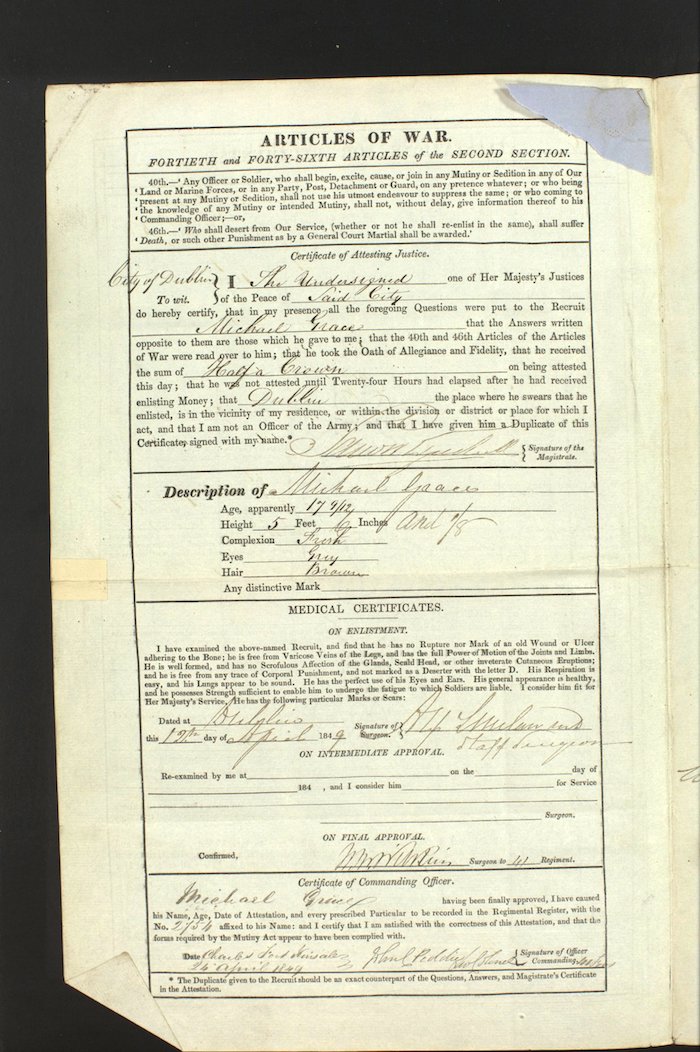 ARTICLES OF WAR.
FORTIETH and FORTY-SIXTH ARTICLES of the SECOND SECTION.
40th.—‘ Any Officer or Soldier, who shall begin, excite, cause, or join in any Mutiny or Sedition in any of Our
‘ Land or Marine Forces, or in any Party, Post, Detachment or Guard, on any pretence whatever; or who being
‘ present at any Mutiny or Sedition, shall not use his utmost endeavour to suppress the same; or who coming to
‘ the knowledge of any Mutiny or intended Mutiny, shall not, without delay, give information thereof to his
‘ Commanding Officer;—or,
46th.—‘ Who shall desert from Our Service, (whether or not he shall re-enlist in the same), shall suffer
‘ Death, or such other Punishment as by a General Court Martial shall be awarded.’
Certificate of Attesting Justice.
City of Dublin } I The Undersigned one of Her Majesty's Justices
To wit. of the Peace of Said City
do hereby certify, that in my presence all the foregoing Questions were put to the Recruit
Michael Grace that the Answers written
opposite to them are those which he gave to me; that the 40th and 46th Articles of the Articles
of War were read over to him; that he took the Oath of Allegiance and Fidelity, that he received
the sum of Half a Crown on being attested
this day; that he was not attested until Twenty-four Hours had elapsed after he had received
enlisting Money; that Dublin the place where he swears that he
enlisted, is in the vicinity of my residence, or within the division or district or place for which I
act, and that I am not an Officer of the Army; and that I have given him a Duplicate of this
Certificate, signed with my name.* { Signature of the
Magistrate.
Description of Michael Grace
Age, apparently 17 9/12
Height 5 Feet 6 Inches And 7/8
Complexion Fresh
Eyes Grey
Hair Brown
Any distinctive Mark
MEDICAL CERTIFICATES.
ON ENLISTMENT.
I have examined the above-named Recruit, and find that he has no Rupture nor Mark of an old Wound or Ulcer
adhering to the Bone; he is free from Varicose Veins of the Legs, and has the full Power of Motion of the Joints and Limbs.
He is well formed, and has no Scrofulous Affection of the Glands, Scald Head, or other inveterate Cutaneous Eruptions;
and he is free from any trace of Corporal Punishment, and not marked as a Deserter with the letter D. His Respiration is
easy, and his Lungs appear to be sound. He has the perfect use of his Eyes and Ears. His general appearance is healthy,
and he possesses Strength sufficient to enable him to undergo the fatigue to which Soldiers are liable. I consider him fit for
Her Majesty's Service. He has the following particular Marks or Scars:
Dated at Dublin
this 12th day of April 1849 Signature of Surgeon. { Staff Surgeon
ON INTERMEDIATE APPROVAL.
Re-examined by me at on the day of
184 , and I consider him for Service
Surgeon.
ON FINAL APPROVAL.
Confirmed, Surgeon to 41 Regiment.
Certificate of Commanding Officer.
Michael Grace having been finally approved, I have caused
his Name, Age, Date of Attestation, and every prescribed Particular to be recorded in the Regimental Register, with the
No. 2754 affixed to his Name: and I certify that I am satisfied with the correctness of this Attestation, and that the
forms required by the Mutiny Act appear to have been complied with.
Date Charles Fort Kinsale { Signature of Officer
24 April 1849 Commanding
* The Duplicate given to the Recruit should be an exact counterpart of the Questions, Answers, and Magistrate's Certificate
in the Attestation.